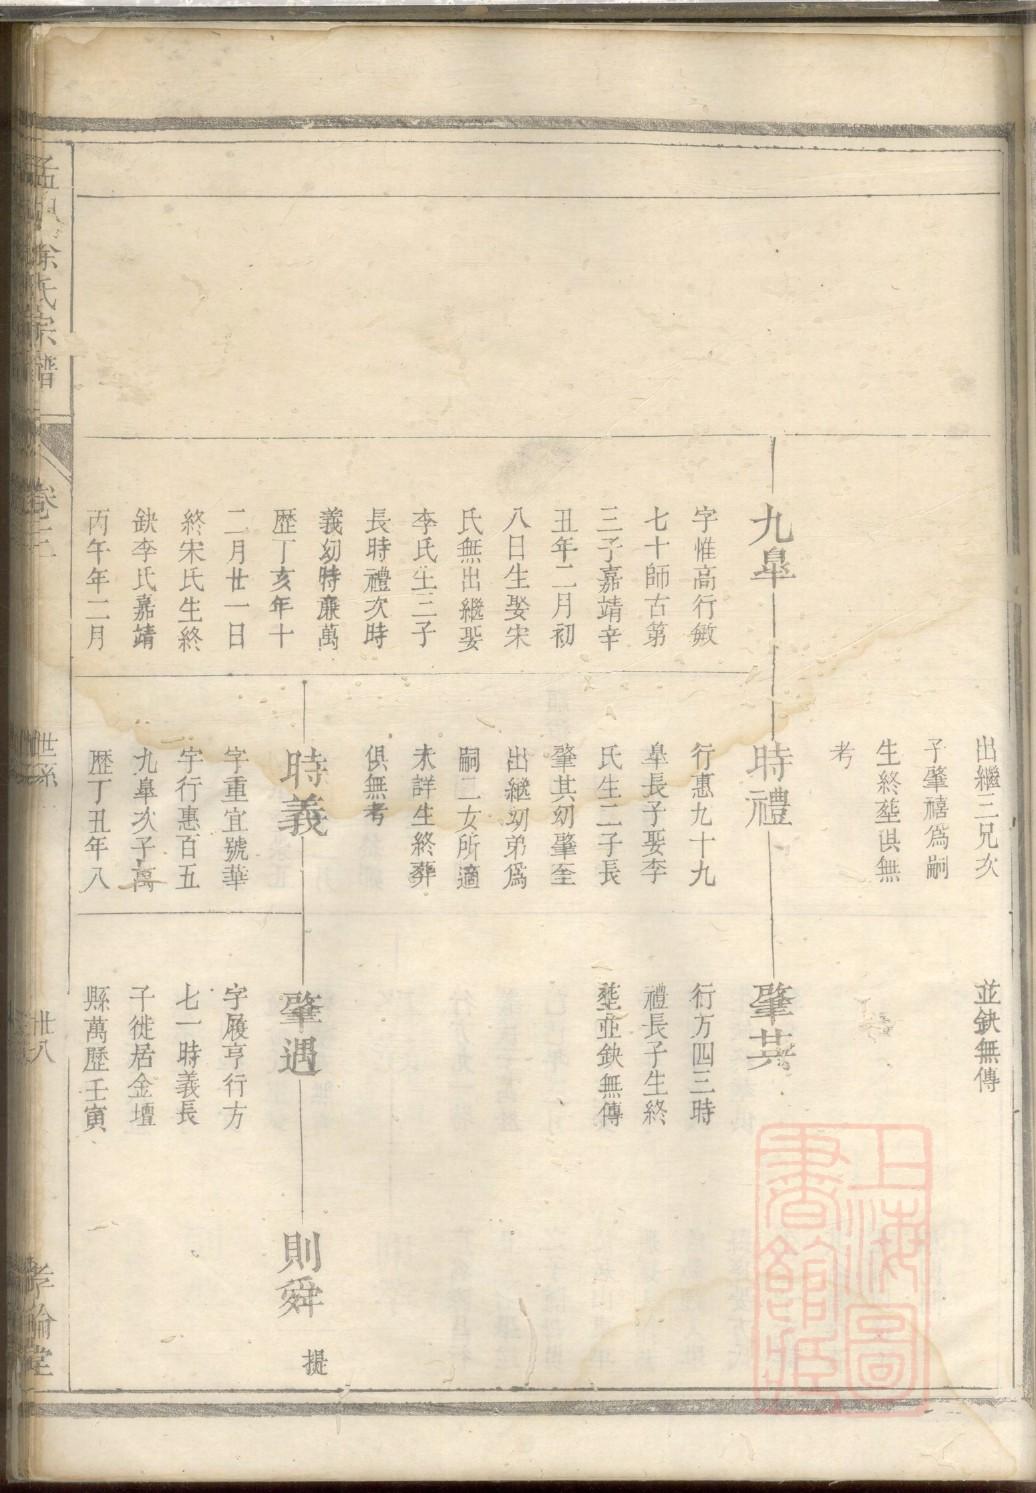 出繼三兄次
子肇禧爲嗣
生終塟俱無
考
並缺無傳
九皐
字惟高行敏
七十師古第
三子嘉靖辛
丑年二月初
八日生娶宋
氏無出繼娶
李氏生三子
長時禮次時
義幼時廉萬
歷丁亥年十
二月廿一日
終宋氏生終
缺李氏嘉靖
丙午年二月
時禮
行惠九十九
皐長子娶李
氏生二子長
肇其幼肇奎
出繼幼弟爲
嗣二女所適
未詳生終葬
俱無考
肇其
行方四三時
禮長子生終
塟並缺無傳
時義
字重宜號華
宇行惠百五
九皐次子萬
歷丁丑年八
肇遇
字履亨行方
七一時義長
子徙居金壇
縣萬歷壬寅
則舜
提
徐氏宗譜
卷二
世系
卅八
孝倫堂
上海圖書館藏